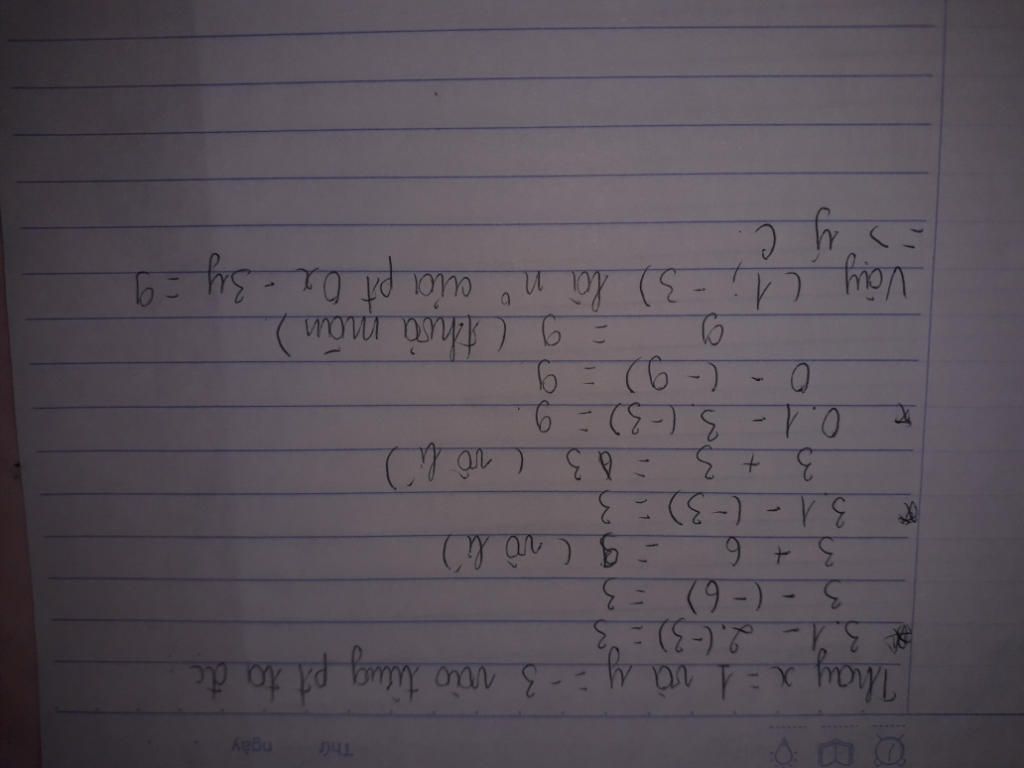 Thứ ngày
Thay x = 1 và y = -3 vào từng pt ta đc
* 3.1 - 2.(-3) = 3
3 - (-6) = 3
3 + 6 = (vô lí)
* 3.1 - (-3) = 3
3 + 3 = 3 (vô lí)
* 0.1 - 3.(-3) = 9
0 - (-9) = 9
9 = 9 (thoả mãn)
Vậy (1; -3) là n° của pt 0x - 3y = 9
=> ý C.